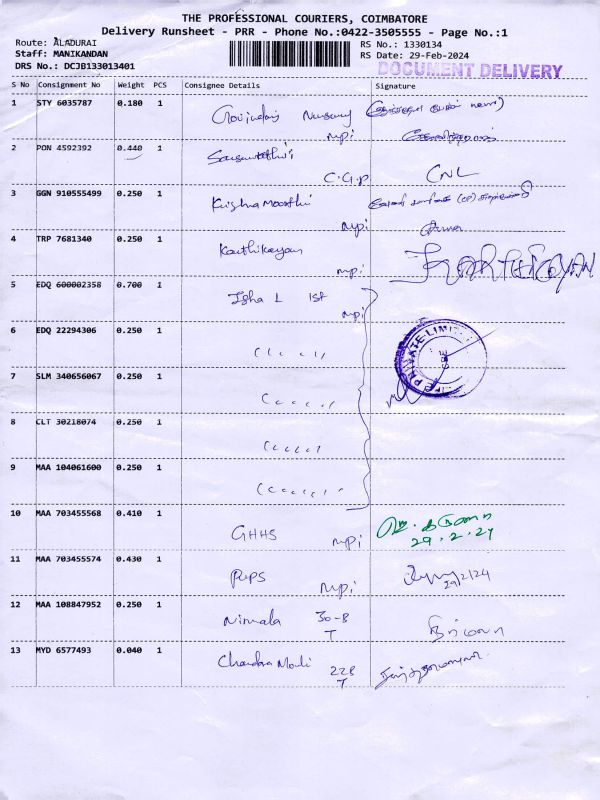 THE PROFESSIONAL COURIERS, COIMBATORE
Delivery Runsheet - PRR - Phone No.:0422-3505555 - Page No.:1
Route: ALADURAI
Staff: MANIKANDAN
DRS No.: DCJB133013401
RS No.: 1330134
RS Date: 29-Feb-2024
DOCUMENT DELIVERY
S No Consignment No Weight PCS Consignee Details Signature
1 STY 6035787 0.180 1
mpi
2 PON 4592392 0.440 1
C.G.P CNL
3 GGN 910555499 0.250 1 Krishna Moorthi
mpi
4 TRP 7681340 0.250 1 Karthikeyan
mpi
5 EDQ 600002358 0.700 1 Isha L 1st
mpi
6 EDQ 22294306 0.250 1
PRIVATE LIMITED
7 SLM 340656067 0.250 1
8 CLT 30218074 0.250 1
9 MAA 104061600 0.250 1
10 MAA 703455568 0.410 1
GHHS mpi 29.2.24
11 MAA 703455574 0.430 1
PUPS mpi 29/2/24
12 MAA 108847952 0.250 1 Nirmala 30-B
T நிர்மலா
13 MYD 6577493 0.040 1 Chandra Mouli 22B
T